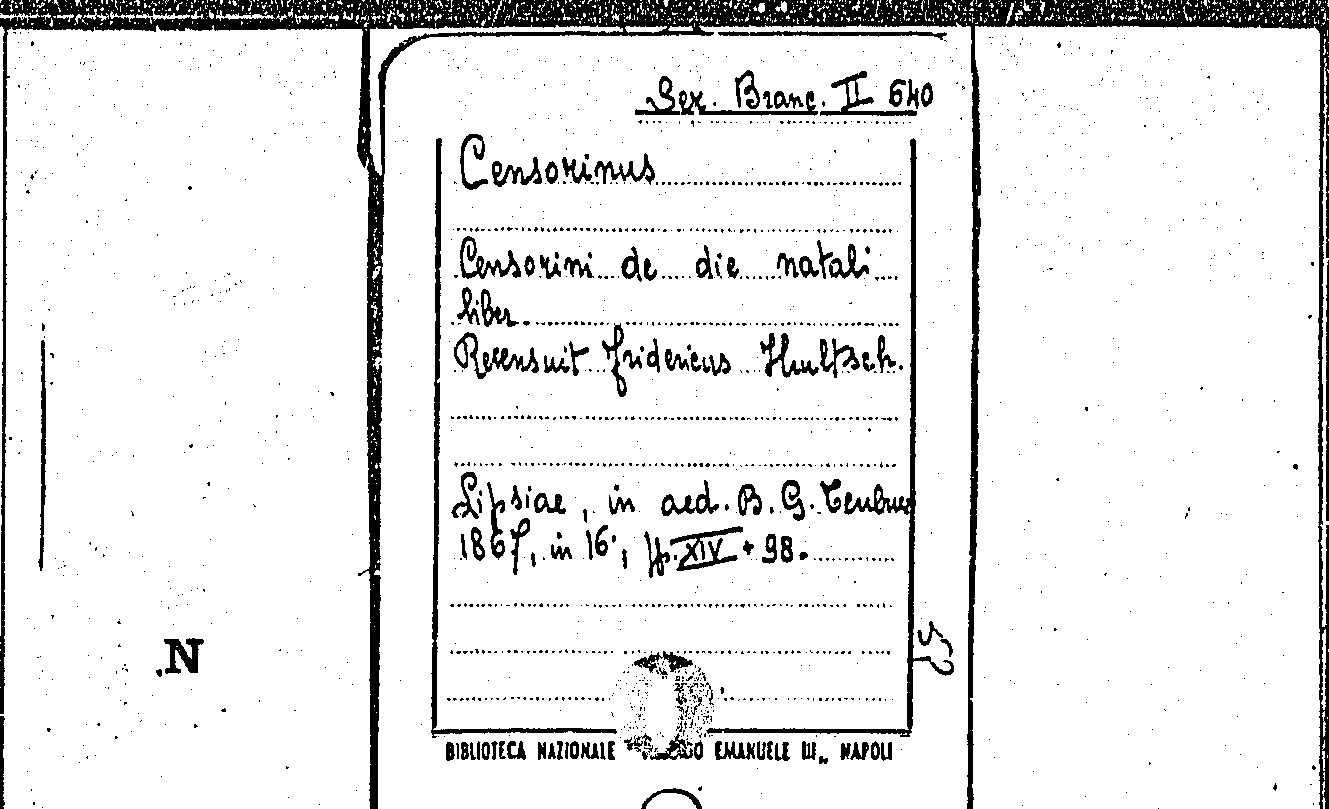 Ser. Branc. II 640
Censorinus
Censorini de die natali
liber.
Recensuit Fridericus Hultsch.
Lipsiae, in aed. B. G. Teubner
1867, in 16°, pp. XIV + 98.
52
N
BIBLIOTECA NAZIONALE EMANUELE III„ NAPOLI